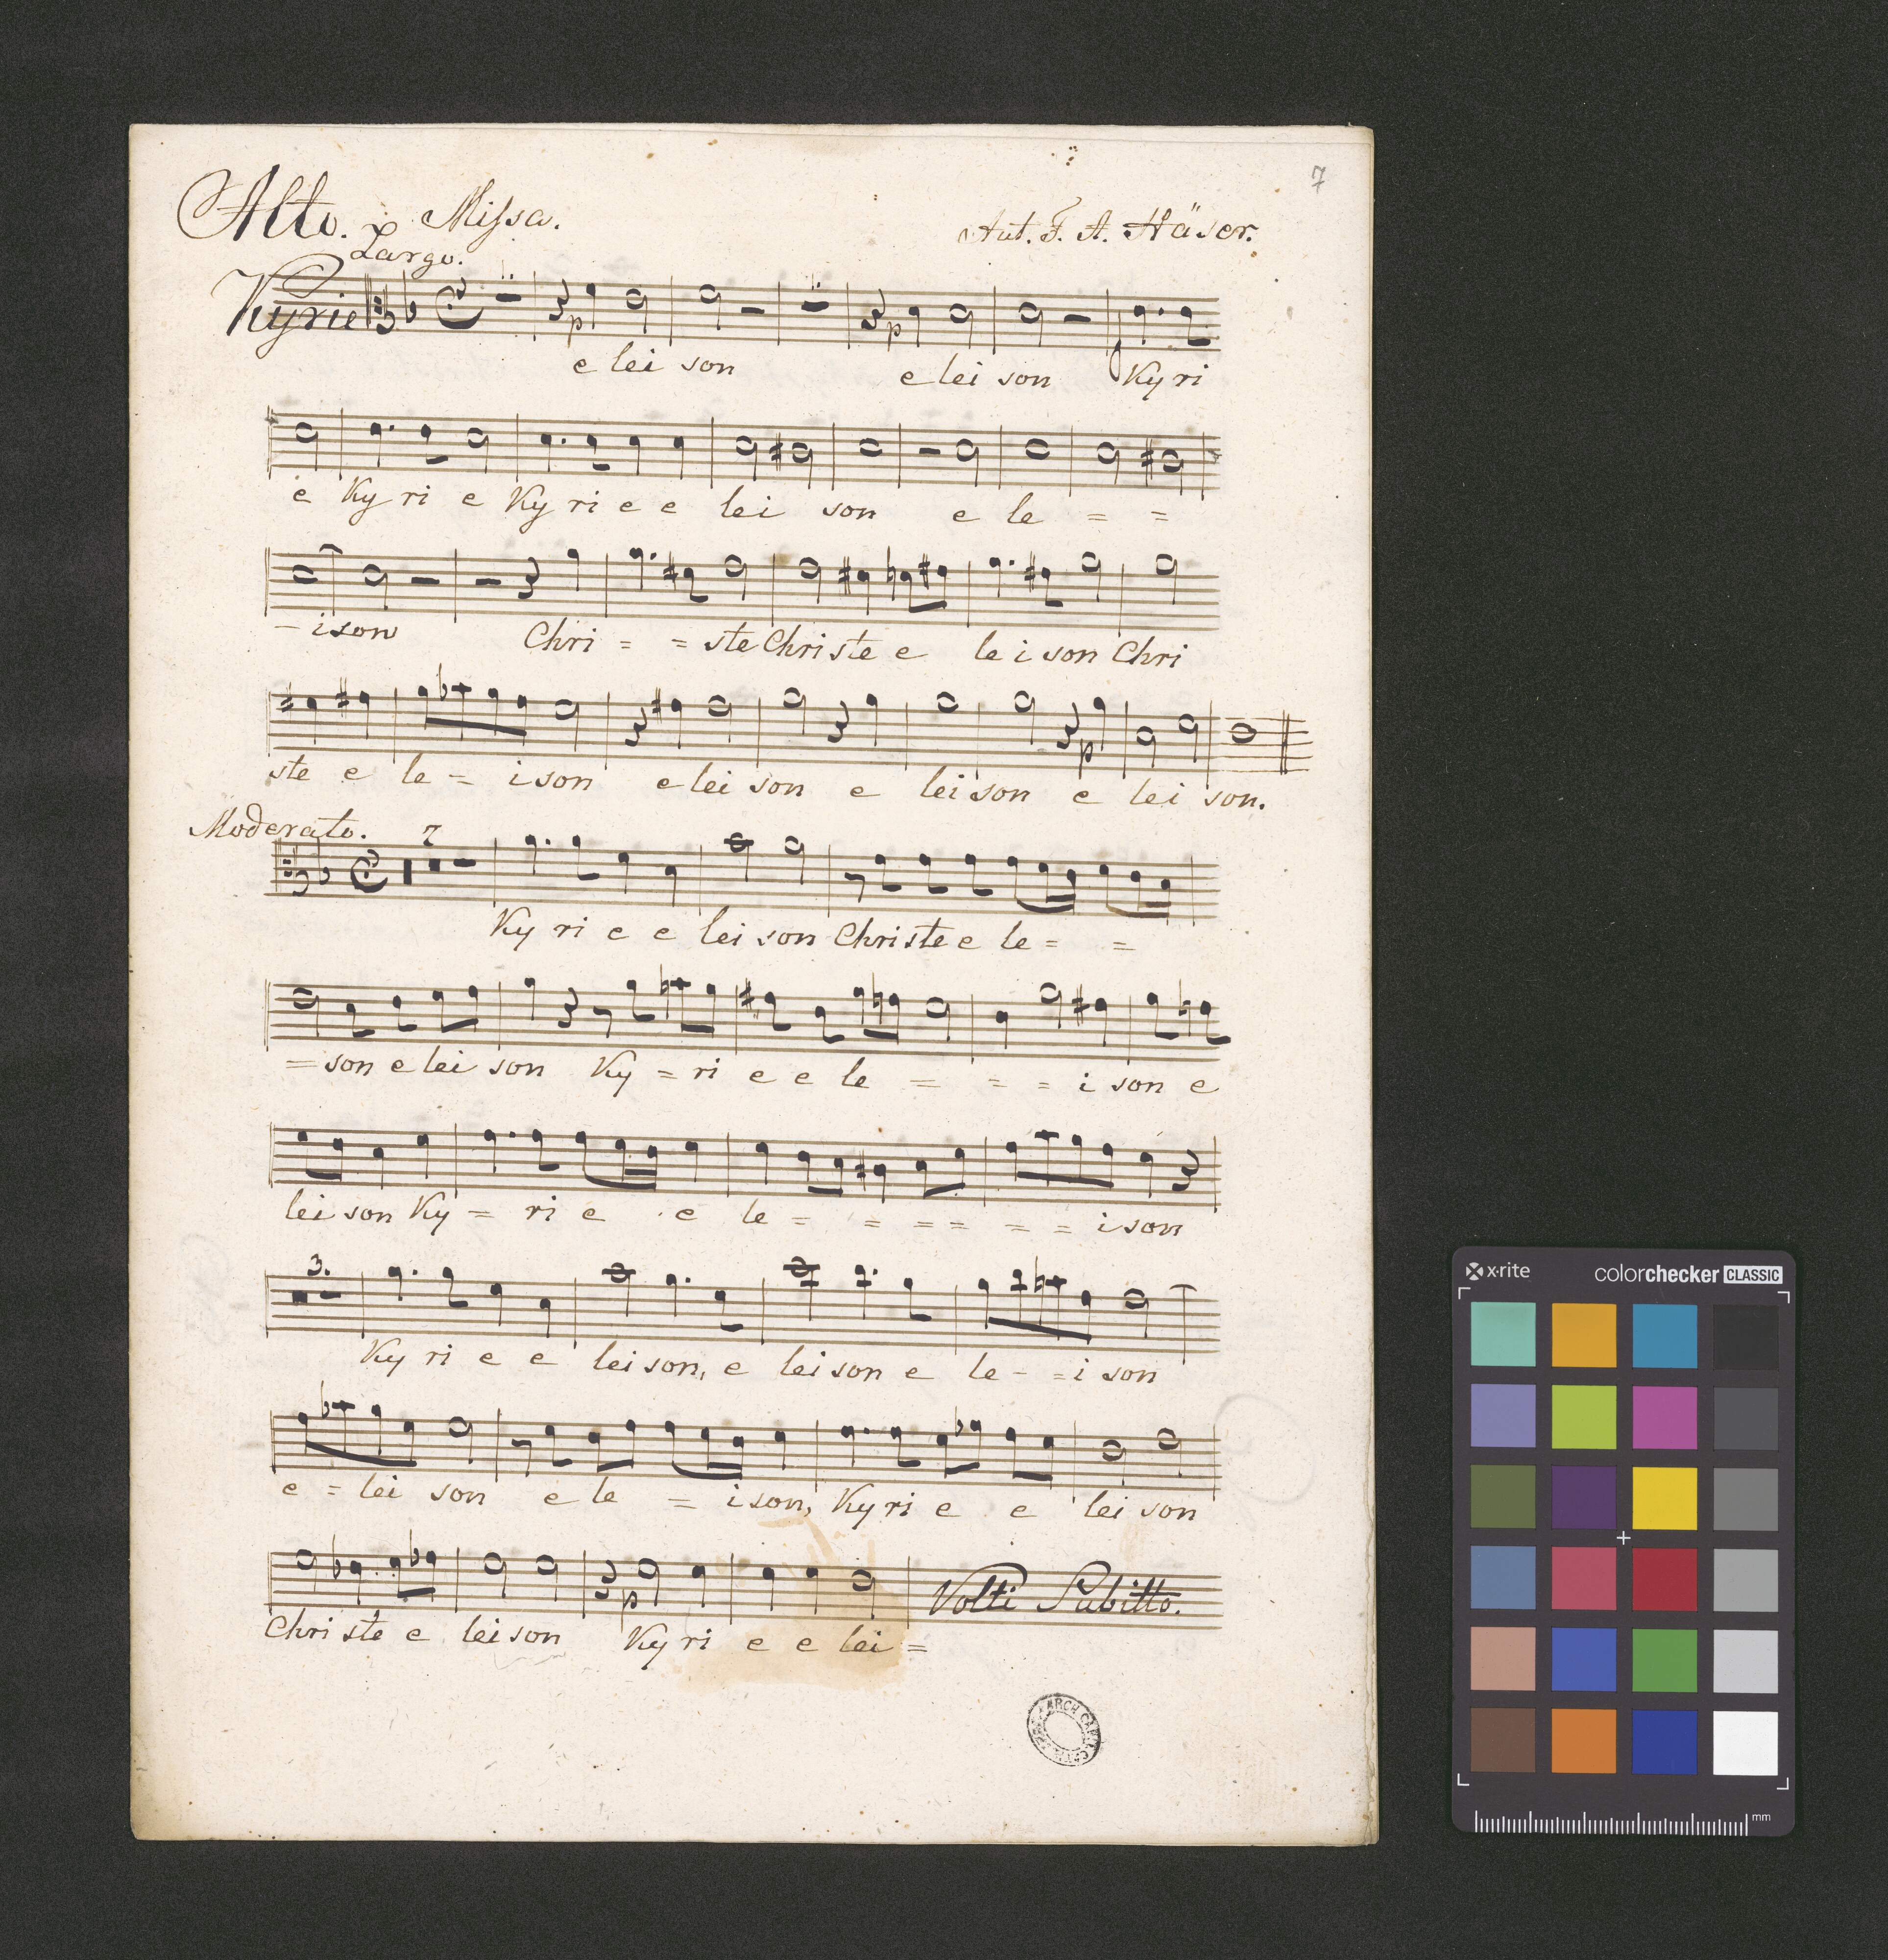 7
Alto. Missa. Aut. F. A. Häser.
Largo.
Kyrie
p p f
e lei son e lei son Ky ri
e Ky ri e Ky ri e e lei son e le = =
- i son Chri = = ste Chri ste e le i son Chri
p
ste e le - i son e lei son e lei son e lei son.
Moderato. 7
Ky ri e e lei son Chri ste e le = =
= son e lei son Ky = ri e e le = = = i son e
lei son Ky = ri e e le = = = = = = i son
3.
Ky ri e e lei son, e lei son e le - = i son
e = lei son e le = i son, Ky ri e e lei son
p Volti Subitto.
Chri ste e lei son Ky ri e e lei =
x·rite colorchecker CLASSIC
mm